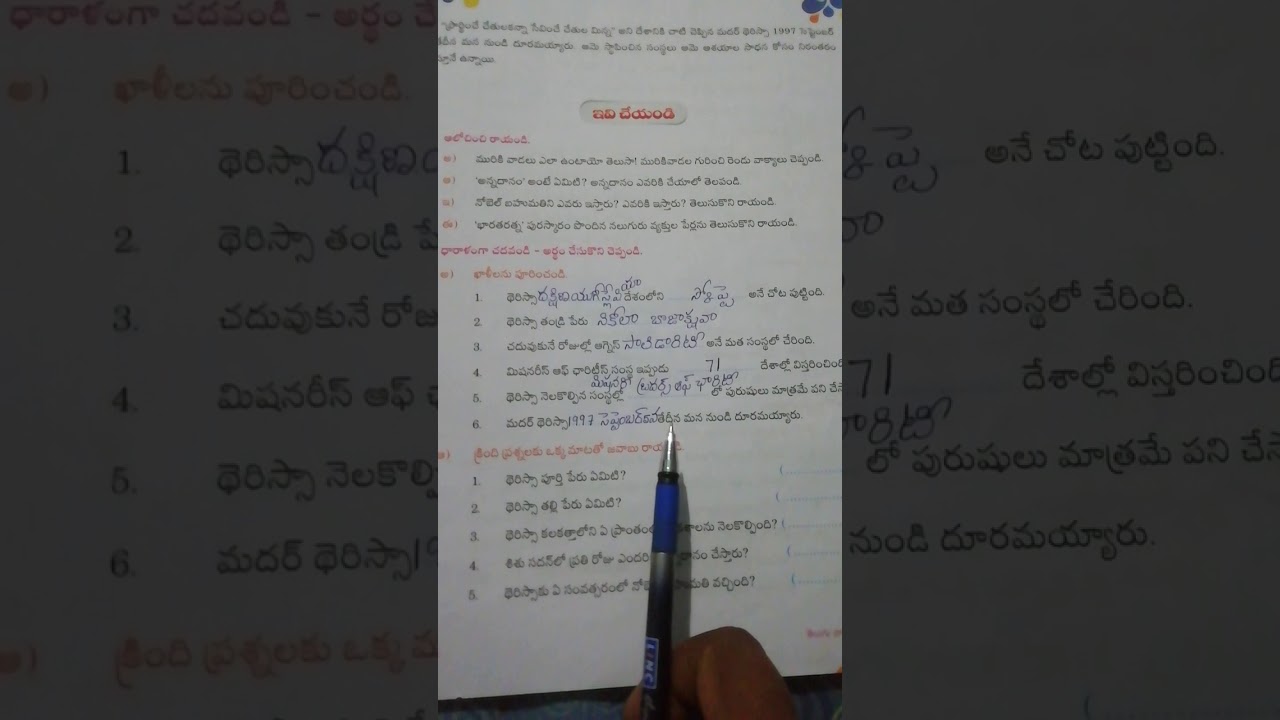 "ప్రార్థించే చేతులకన్నా సేవించే చేతుల మిన్న" అని దేశానికి చాటి చెప్పిన మదర్ థెరిస్సా 1997 సెప్టెంబర్
తేదీన మన నుండి దూరమయ్యారు. ఆమె స్థాపించిన సంస్థలు ఆమె ఆశయాల సాధన కోసం నిరంతరం
ఉన్నాయి.
ఇవి చేయండి
ఆలోచించి రాయండి.
అ) మురికి వాడలు ఎలా ఉంటాయో తెలుసా! మురికివాడల గురించి రెండు వాక్యాలు చెప్పండి.
ఆ) 'అన్నదానం' అంటే ఏమిటి? అన్నదానం ఎవరికి చేయాలో తెలపండి.
ఇ) నోబెల్ బహుమతిని ఎవరు ఇస్తారు? ఎవరికి ఇస్తారు? తెలుసుకొని రాయండి.
ఈ) 'భారతరత్న' పురస్కారం పొందిన నలుగురు వ్యక్తుల పేర్లను తెలుసుకొని రాయండి.
ధారాళంగా చదవండి - అర్థం చేసుకొని చెప్పండి.
అ) ఖాళీలను పూరించండి.
1. థెరిస్సా దక్షిణ యుగోస్లేవియా దేశంలోని స్కోప్జె అనే చోట పుట్టింది.
2. థెరిస్సా తండ్రి పేరు నికోలా బొజాక్షవా
3. చదువుకునే రోజుల్లో ఆగ్నెస్ సాలిడారిటీ అనే మత సంస్థలో చేరింది.
4. మిషనరీస్ ఆఫ్ ఛారిటీస్ సంస్థ ఇప్పుడు 71 దేశాల్లో విస్తరించింది
5. థెరిస్సా నెలకొల్పిన సంస్థల్లో మిషనరీ బ్రదర్స్ ఆఫ్ ఛారిటీ లో పురుషులు మాత్రమే పని చేసే
6. మదర్ థెరిస్సా 1997 సెప్టెంబర్ తేదీన మన నుండి దూరమయ్యారు.
ఆ) క్రింది ప్రశ్నలకు ఒక్క మాటతో జవాబు రాయండి.
1. థెరిస్సా పూర్తి పేరు ఏమిటి? (
2. థెరిస్సా తల్లి పేరు ఏమిటి? (
3. థెరిస్సా కలకత్తాలోని ఏ ప్రాంతంలో నెలకొల్పింది? (
4. శిశు సదన్‌లో ప్రతి రోజు ఎందరికి చేస్తారు? (
5. థెరిస్సాకు ఏ సంవత్సరంలో వచ్చింది? (
LINC